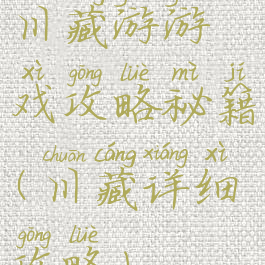 川藏游游
xì gōng lüè mì jí
戏攻略秘籍
chuān cáng xiáng xì
(川藏详细
gōng lüè
攻略)